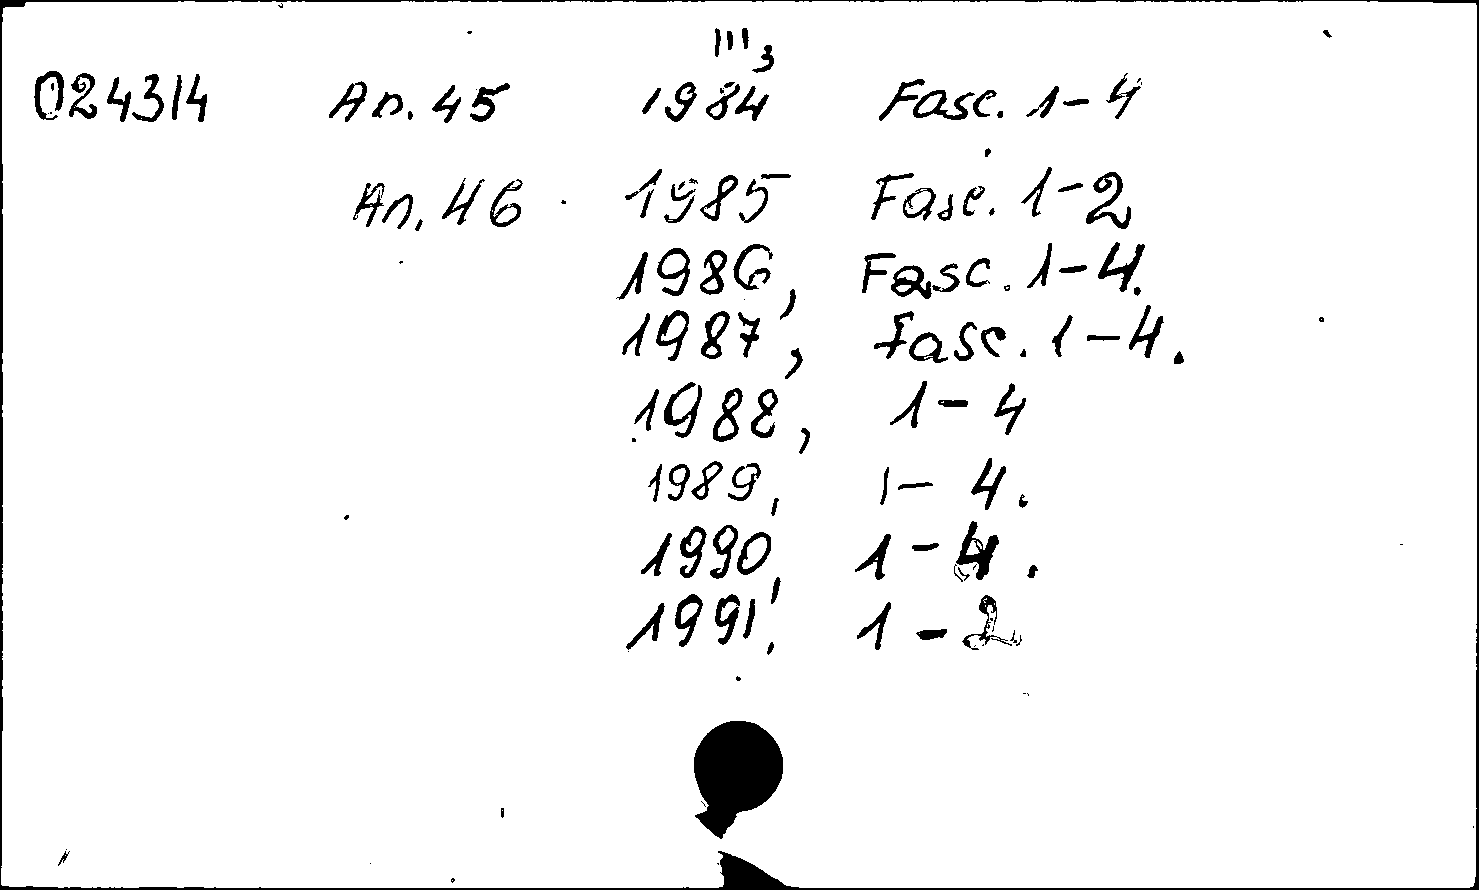 III 3
024314 An. 45 1984 Fasc. 1-4
An. 46 1985 Fasc. 1-2
1986, Fasc. 1-4.
1987, fasc. 1-4.
1988, 1-4
1989, 1-4.
1990, 1-4.
1991, 1-2